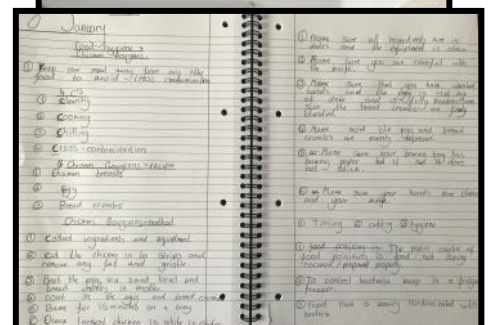 January
Food hygiene +
Chicken Goujons.
① Keep raw meat away from any other
food to avoid cross contamination
4 C's
① Cleaning
② Cooking
③ Chilling
④ Cross-contamination
Chicken Goujons - recipe
① Chicken breasts
② Egg
③ Bread crumbs
Chicken Goujons - method
① Collect ingredients and equipment.
② Cut the chicken in to strips and
remove any fat and gristle.
③ Beat the egg in a small bowl and
bread crumbs in another
④ coat in the egg and bread crumbs
⑤ Bake for 15 minutes on a tray
⑥ Check chicken is white in
① Make sure all ingredients are in
date and the equipment is clean
② Make sure you are careful with
the knife.
③ Make sure that you have washed
hands and the egg is not out
of date and
sure the bread crumbs are
④ Make sure the egg and bread
crumbs are evenly
⑤ Make sure your baking tray has
baking paper on it so it does
not stick.
⑥ Make sure your hands are clean
and your
① Timing ② cutting ③ hygiene
① Food poisoning - The main cause of
food poisoning is food not being
cooked / prepared properly
② To control bacteria keep in a fridge
freezer.
③ Food that is contaminated with
bacteria